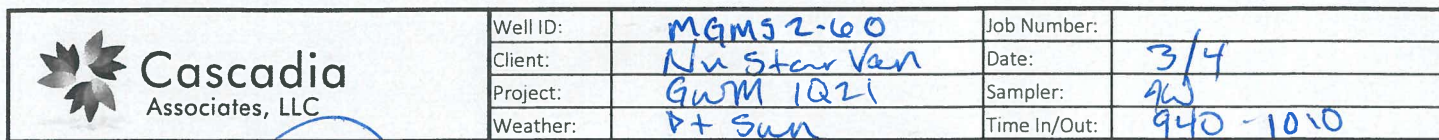 Cascadia
Associates, LLC
Well ID: MGMS2-60 Job Number:
Client: NuStar Van Date: 3/4
Project: GWM 1Q21 Sampler:
Weather: Pt Sun Time In/Out: 940 - 1010